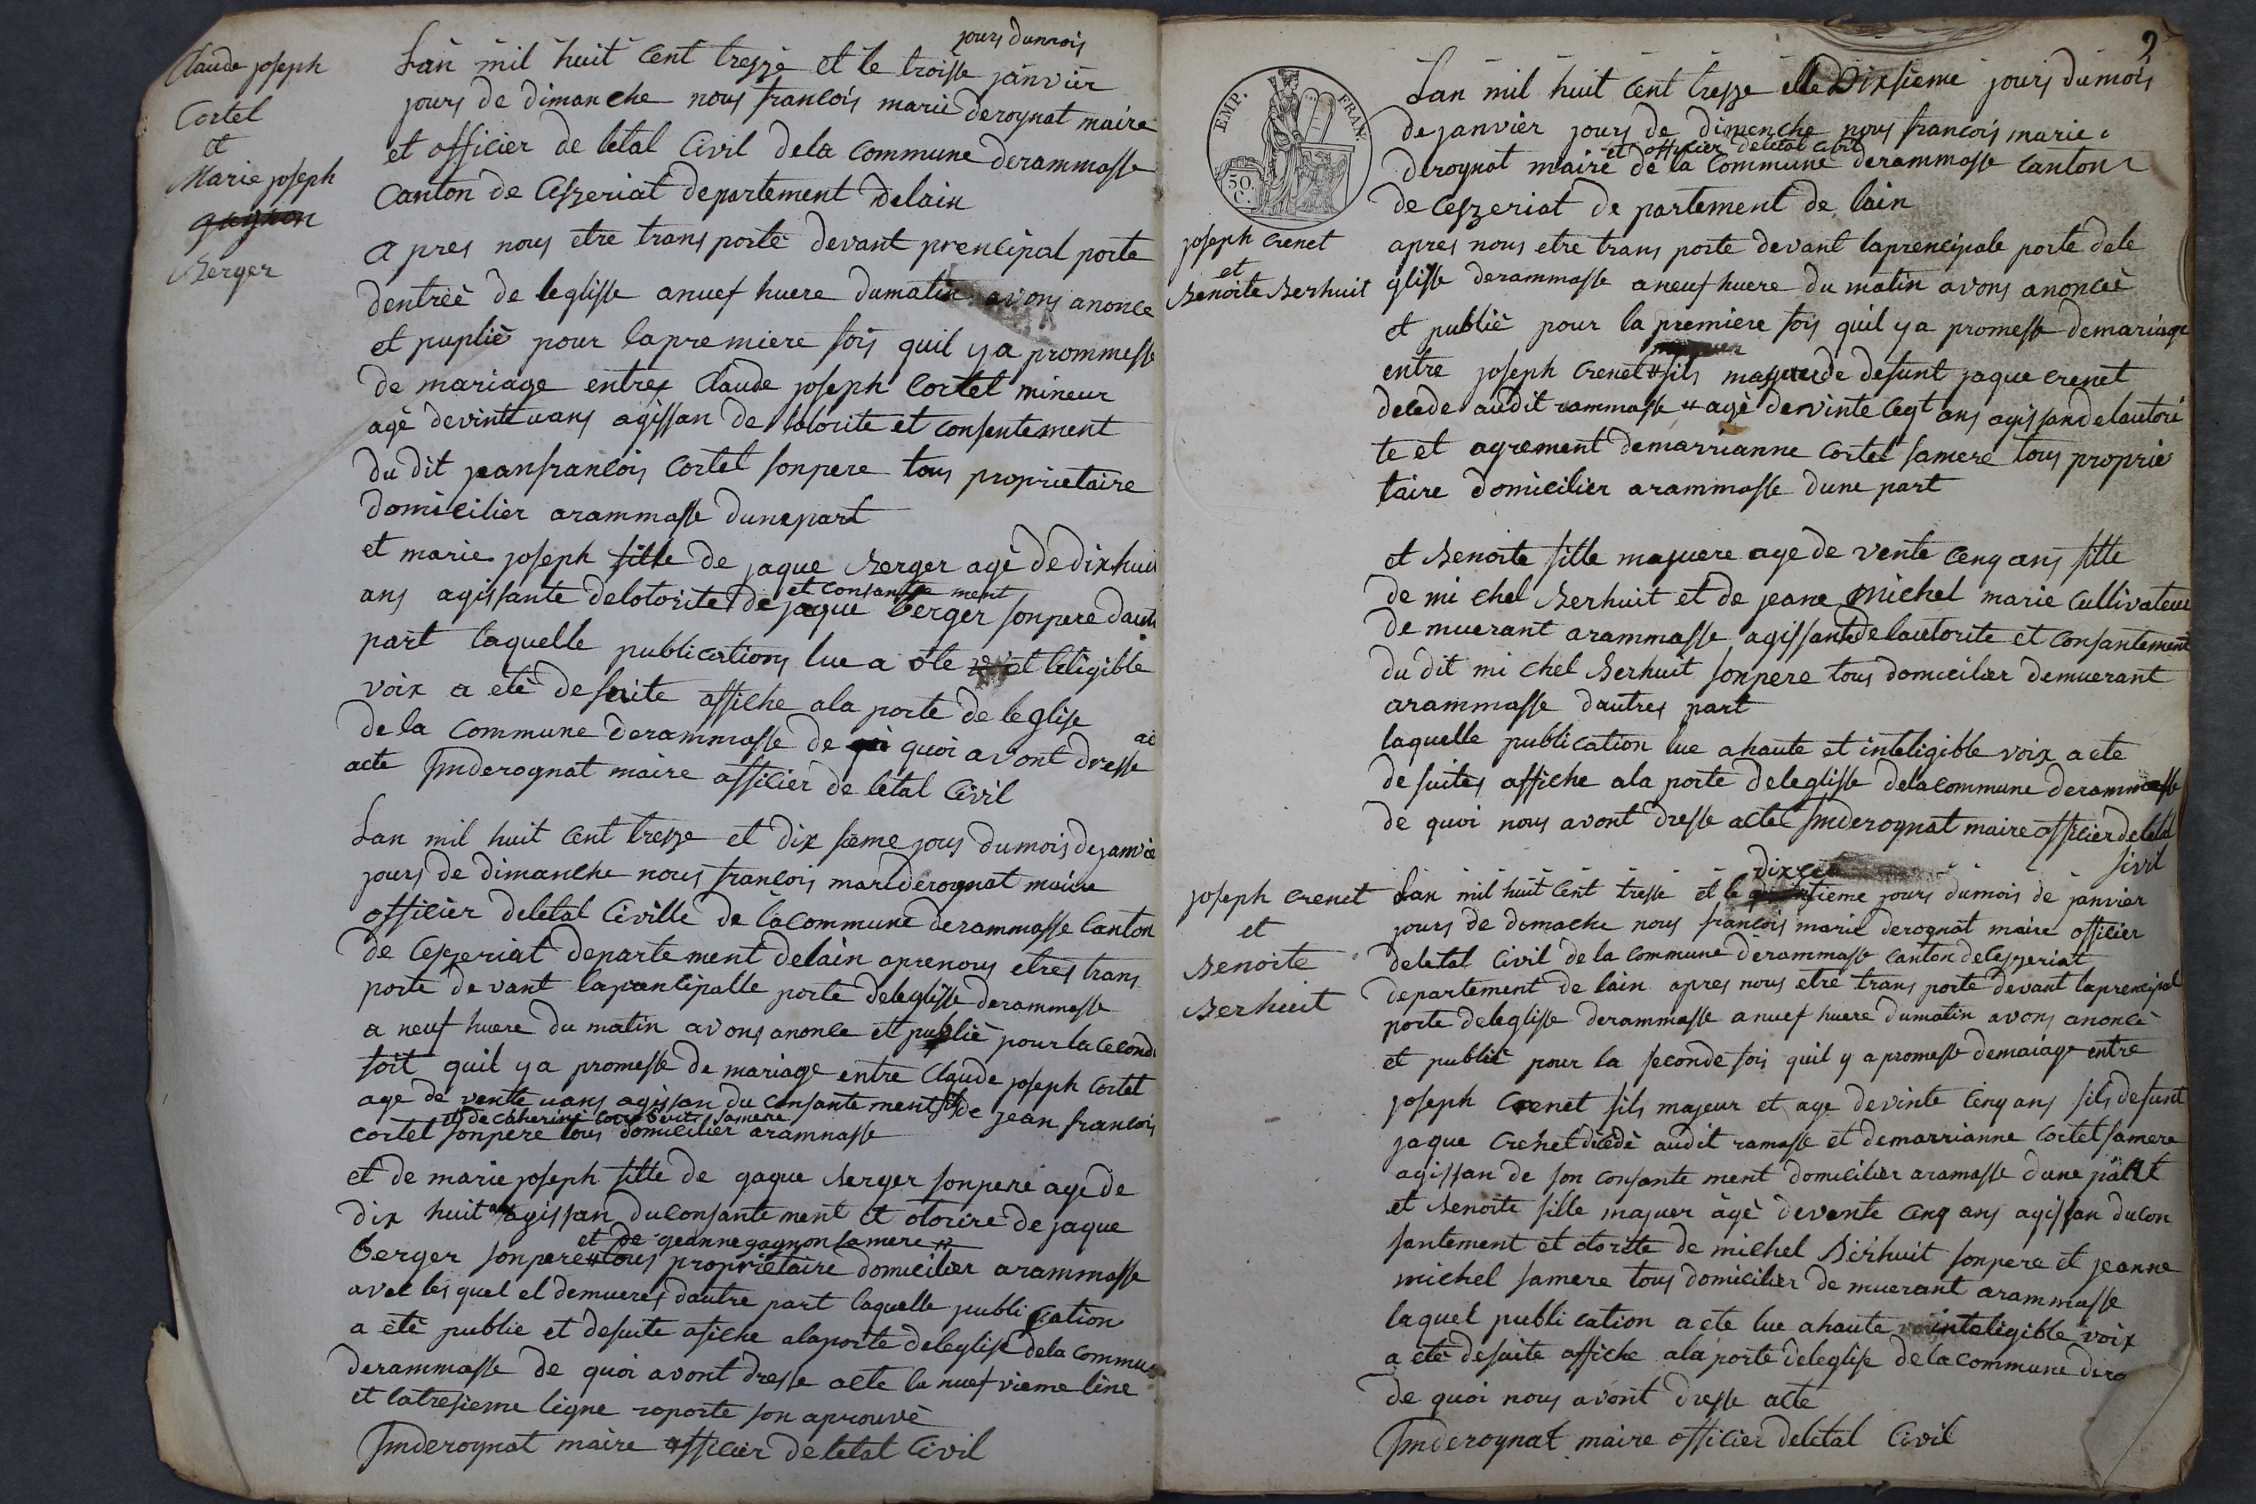 Claude joseph
Cortel
et
Marie joseph
gagnon
Berger
jours dumois
Lan mil huit cent trezze et le troisse janvier
jours de dimanche nous francois marie derognat maire
et officier de letat Civil dela commune derammasse
Canton de Cezeriat departement delain
apres nous etre transporte devant prencipal porte
dentreé de leglisse anuef huere dumatin avons anonce
et puplié pour lapremiere fois quil ya prommesse
de mariage entres Claude joseph Cortel mineur
agé devintte uans agissan de lotorite et consentement
du dit jeanfrancois Cortel sonpere tous proprietaire
domicilier arammasse dunepart
et marie joseph fille de jaque Berger agé de dix huit
et consantement
ans agissante delotorite de jaque berger sonpere daut
part laquelle publications lue a ote et leligible
voix a eté desuite affiche ala porte de leglise
de la commune derammasse de qoi quoi avont dresse ac
acte fmderognat maire afficier de letat Civil
Lan mil huit cent trezze et dix seme jours dumois dejanvie
jours de dimanche nous francois mariderognat maire
officier deletat Civille de lacommune derammasse Canton
de Cezeriat departement delain aprenous etres trans
porte devant laprencipalle porte deleglisse derammesse
a neuf huere du matin avons anonce et publié pour la ceconde
foit quil ya promesse de mariage entre Claude joseph Cortel
age de vente uans agissan du consantement de jean francois
et de catherine samere
cortel sonpere tous domicilier aramnasse
et de marie joseph fille de gaque Berger sonpere age de
dix huit ans agissan duconsantement et otorire de jaque
et de geanne gagnon samere
berger sonpere tous proprietaire domicilier arammasse
avec les quel el demueres dautre part laquelle publication
a eté publie et desuite afiche alaporte deleglise dela commune
derammasse de quoi avont dresse acte la nuefvieme line
et latresieme ligne raporte son aprouvé
fmderognat maire officier deletat Civil
9
EMP. FRAN.
50 C.
joseph Crenet
et
Benoite Berhuit
Lan mil huit cent trezze elle Dixsieme jours dumois
dejanvier jours de dimenche nous francois marie
et officier deletat civil
derognat maire de la Commune derammasse canton
de Cezeriat de partement de lain
apres nous etre trans porte devant laprencipale porte dele
glisse derammasse aneuf huere du matin avons anoncée
et publié pour la premiere fois quil ya promesse demariage
entre joseph Crenet fils majeur de defunt jaque crenet
decede audit rammasse agé devinte cegt ans agissandelautori
te et agrement demarrianne cortel samere tous proprie
taire domicilier arammasse dune part
et Benoite fille majuere age de vente cenq ans fille
de mi chel Berhuit et de jeane Michel marie Cultivateur
de muerant arammasse agissante delautorite et consantement
du dit mi chel Berhuit sonpere tous domicilier demuerant
arammasse dautres part
laquelle publication lue ahaute et inteligible voix aete
de suites affiche ala porte deleglisse delacommune derammasse
de quoi nous avont dresse acte fmderognat maire officier deletat
sivil
joseph Crenet
et
Benoite
Berhuit
dixse
Lan mil huit cent tresse et le sieme jours dumois de janvier
jours de demache nous francois marie derognat maire officier
deletat Civil de la commune derammasse Canton deCezeriat
departement de lain apres nous etre trans porte devant laprencipal
porte deleglisse derammasse anuef huere dumatin avons anoncé
et publié pour la seconde fois quil y a promesse demaiage entre
joseph Crenet fils majeur et age devinte cenq ans fils defunt
jaque Crenet décedé audit ramasse et demarrianne cortel samere
agissan de son consante ment domicilier aramasse dune part
et Benoite fille majuer âgé devente cenq ans agissan ducon
santement et otorite de michel Berhuit sonpere et jeanne
michel samere tous domicilier de muerant arammasse
laquel publication aete lue ahaute inteligible voix
a eté desuite affiche ala porte deleglise delacommune dera
de quoi nous avont dresse acte
fmderognat maire officier deletat Civil